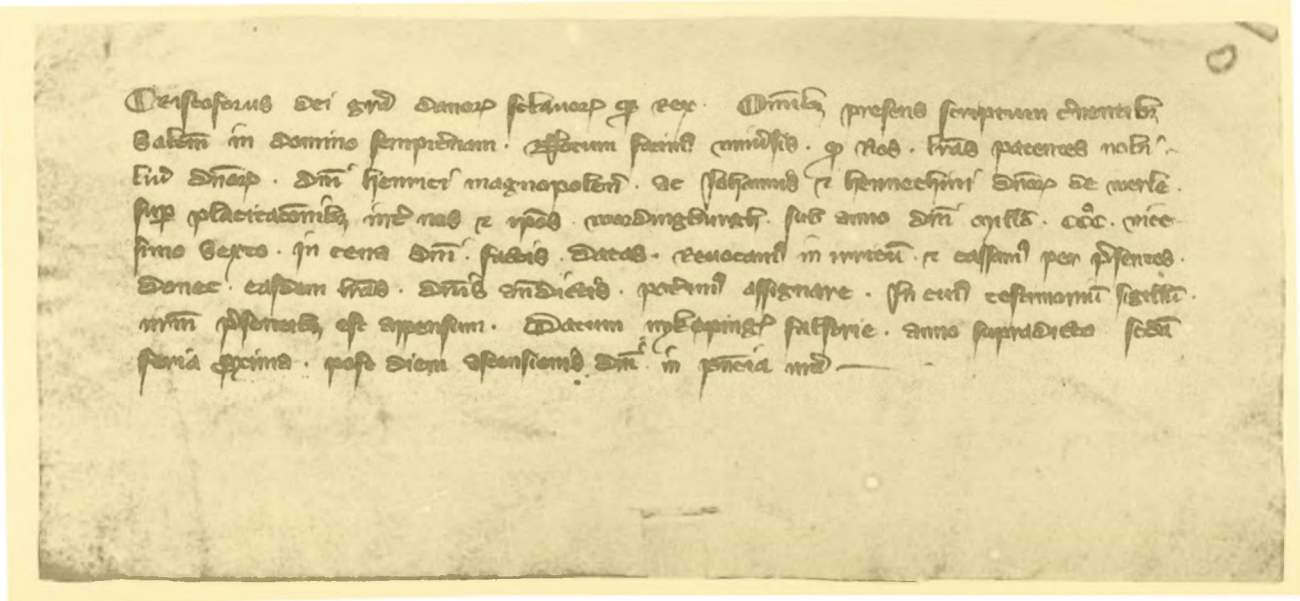 Cristoforus dei gra᷎ danorꝝ sclauorꝝ qꝫ Rex. Om̅ibꝫ presens scriptum c̓nentibꝫ
Salutem in domino sempit̓nam. Notum facim᷒ vniu̓sis. ꝙ Nos. lr̅as patentes nobi-
liū dn̅orꝝ. dn̅i henrici magnopolen̅. ac Joħannis ⁊ hennechini dn̅orꝝ de werle.
sup placitac̅onibꝫ int̓ nos ⁊ ip̅os. wordingburgħ. sub anno dn̅i mill̅o. CCC°. vice-
simo Sexto. in cena dn̅i. factis. datas. Reuocam᷒ in irritū ⁊ cassam᷒ per p̓sentes.
donec. easdem lr̅as. dn̅is an̅dictis. pot̓im᷒ assignare. In cui᷒ testimoniū sigillū.
nr̅m p̓sentibꝫ est apensum. Datum nykøpingꝭ falstrie. anno supradicto scd̅a
feria ꝓxima. post diem ascensionis dn̅i in p̅ncia nr̅a